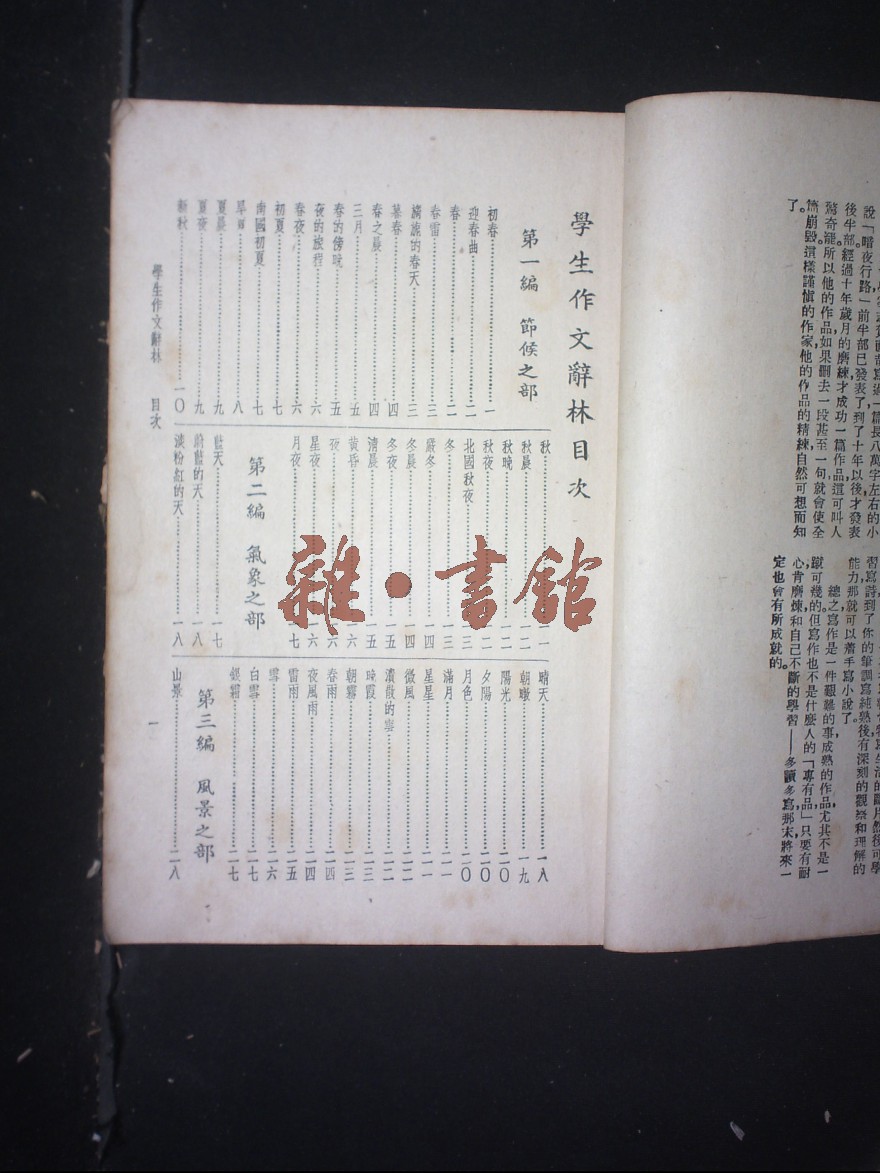 寫過一篇長八萬字左右的小
說「暗夜行路」前半部已發表了,到了十年以後才發表
後半部。經過十年歲月的磨練才成功一篇作品,這可叫人
驚奇罷。所以他的作品如果刪去一段甚至一句就會使全
篇崩毀。這樣謹慎的作家,他的作品的精練自然可想而知
了。
習寫詩,到了你的筆調寫純熟後,有深刻的觀察和理解的
能力,那就可以着手寫小說了。
總之,寫作是一件艱難的事,成熟的作品,尤其不是一
蹴可幾的。但寫作也不是什麼人的「專有品」,只要有耐
心,肯磨煉和自己不斷的學習——多讀多寫,那末將來一
定也會有所成就的。
學生作文辭林目次
第一編 節候之部
初春……一
迎春曲……二
春……二
春雷……三
的春天……三
暮春……四
春之晨……四
三月……五
春的傍晚……五
夜的旅程……六
春夜……六
初夏……七
南國初夏……七
八
夏晨……九
夏夜……九
新秋……一〇
秋……一一
秋晨……一二
秋晚……一二
秋夜……一二
北國秋夜……一三
冬……一三
嚴冬……一四
冬晨……一四
冬夜……一五
清晨……一五
黃昏……一六
夜……一六
星夜……一六
月夜……一七
第二編 氣象之部
藍天……一七
蔚藍的天……一八
淡粉紅的天……一八
晴天……一八
朝暾……一九
陽光……二〇
夕陽……二〇
月色……二〇
滿月……二一
星星……二一
微風……二二
潰散的雲……二二
晚霞……二三
朝霧……二三
春雨……二四
夜風雨……二四
雷雨……二五
雪……二六
白雪……二七
銀霜……二七
第三編 風景之部
山景……二八
學生作文辭林 目次
一
雜·書館